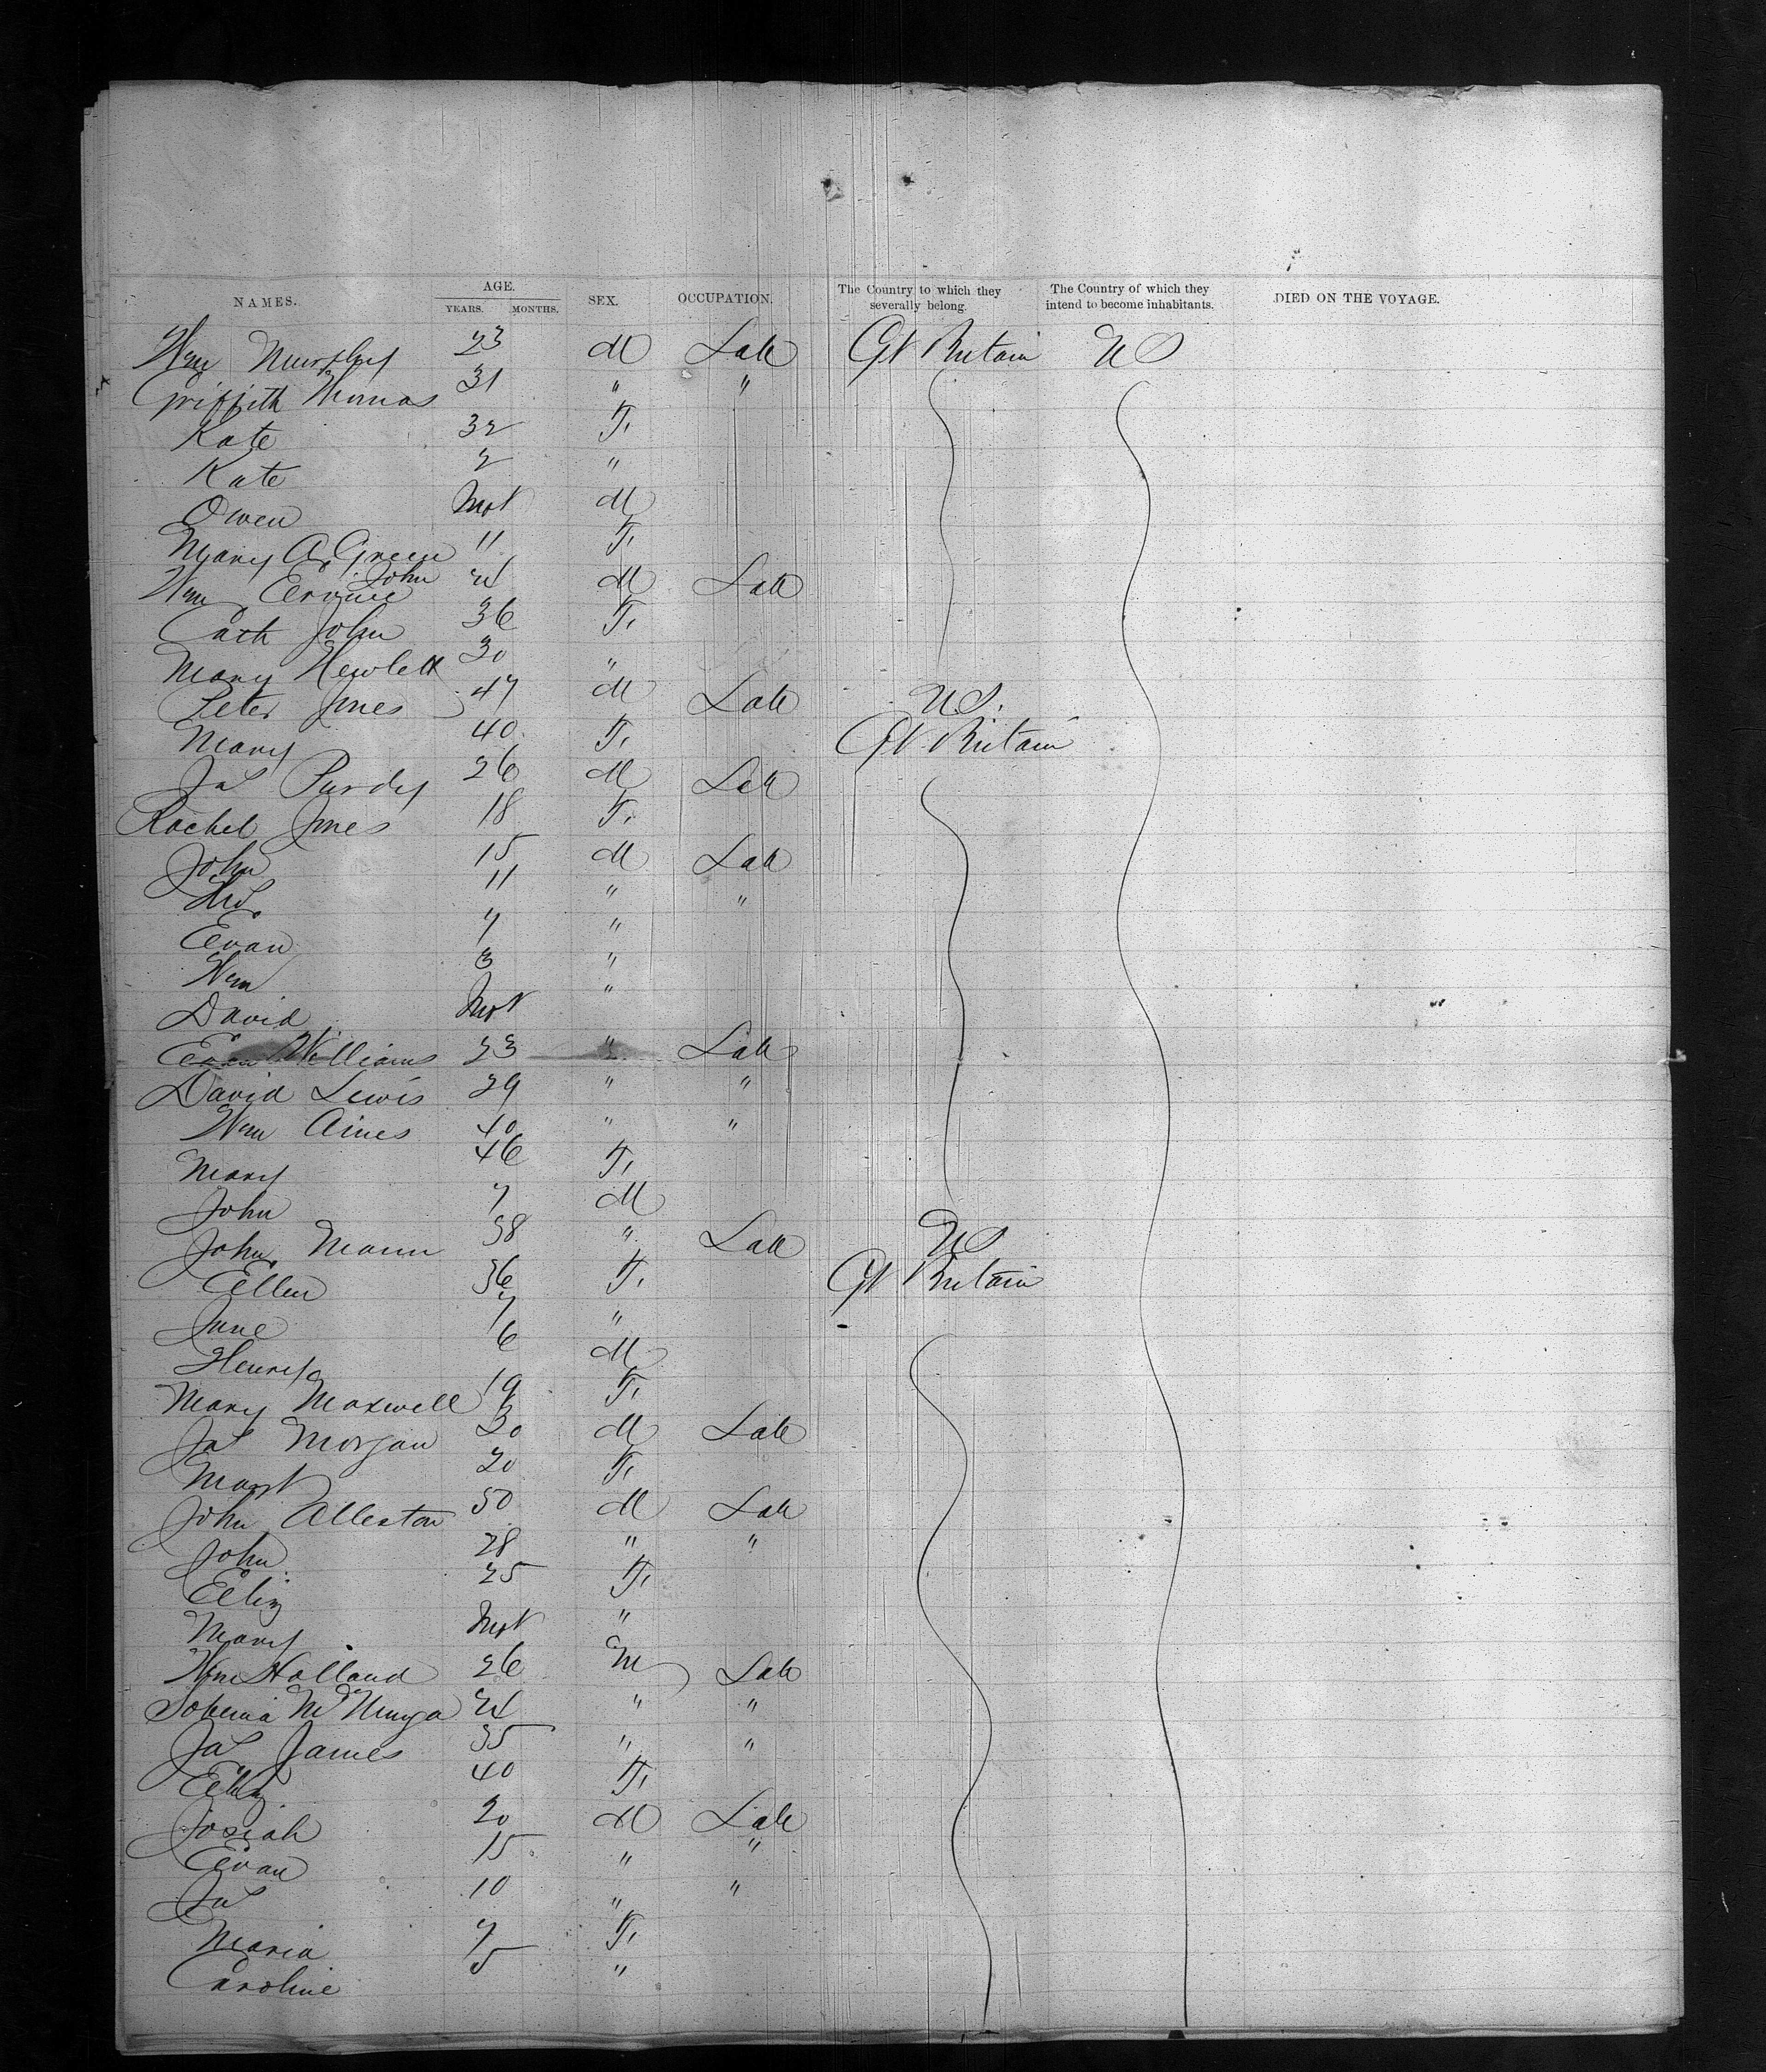 NAMES. AGE. SEX. OCCUPATION. The Country to which they severally belong. The Country of which they intend to become inhabitants. DIED ON THE VOYAGE.
YEARS. MONTHS.
Wm Murphy 23 M Lab Gt Britain US
Griffith Thomas 31 " "
Kate 32 F.
Kate 2 "
Owen Inft M
Mary A Green 11 F.
Wm John 24 M Lab
Cath John 36 F.
Mary Hewlett 30 "
Peter Jones 47 M Lab U.S.
Mary 40 F. Gt Britain
Jas Purdy 26 M Lab
Rachel Jones 18 F.
John 15 M Lab
11 " "
Evan 7 "
Wm 3 "
David Inft "
Evan Williams 23 " Lab
David Lewis 29 " "
Wm Aines 40 " "
Mary 46 F.
John 7 M
John Mann 38 " Lab US
Ellen 36 F. Gt Britain
Jane 7 "
Henry 6 M
Mary Maxwell 19 F.
Jas Morgan 30 M Lab
Margt 20 F.
John Alleston 50 M Lab
John 28 " "
Eliz 25 F.
Mary Inft "
Wm Holland 26 M Lab
24 " "
Jas James 35 " "
Eliz 40 F.
Josiah 20 M Lab
Evan 15 " "
Jas 10 " "
Maria 7 F.
Caroline 5 "